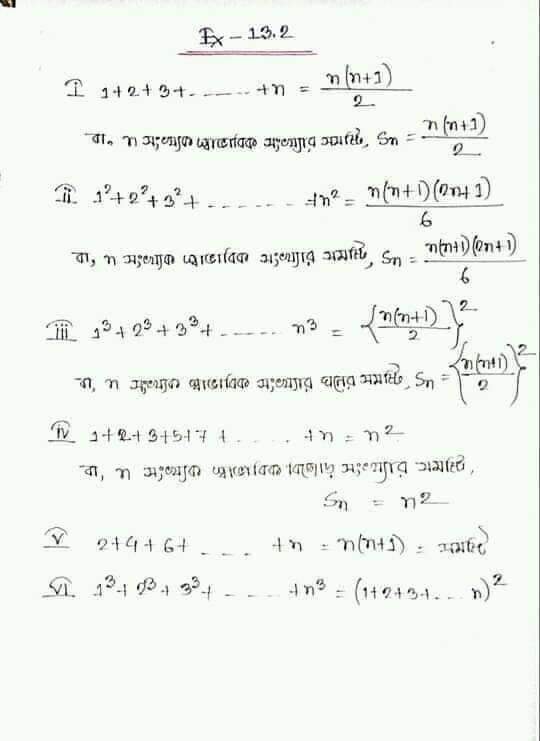 Ex - 13.2
i 1+2+3+ - ..... +n = n(n+1)/2
বা, n সংখ্যক স্বাভাবিক সংখ্যার সমষ্টি, Sn = n(n+1)/2
ii 1²+2²+3²+ - - - - - - - +n² = n(n+1)(2n+1)/6
বা, n সংখ্যক স্বাভাবিক সংখ্যার সমষ্টি, Sn = n(n+1)(2n+1)/6
iii 1³+2³+3³+ - - - - - - n³ = {n(n+1)/2}²
বা, n সংখ্যক স্বাভাবিক সংখ্যার ঘনের সমষ্টি, Sn = {n(n+1)/2}²
iv 1+2+3+5+7+ . . . . . +n = n²
বা, n সংখ্যক স্বাভাবিক বিজোড় সংখ্যার সমষ্টি,
Sn = n²
v 2+4+6+ - - - . +n = n(n+1) = সমষ্টি
vi 1³+2³+3³+ - . . . . +n³ = (1+2+3+ . . . n)²